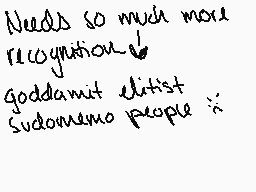 Needs so much more
recognition ↓
goddamit elitist
sudomemo people :(